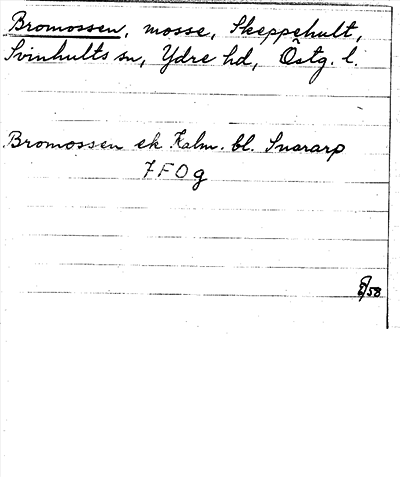 Bromossen, mosse, Skeppehult,
Svinhults sn, Ydre hd, Östg. l.
Bromossen ek Kalm. bl. Snararp
7 F O g
/58